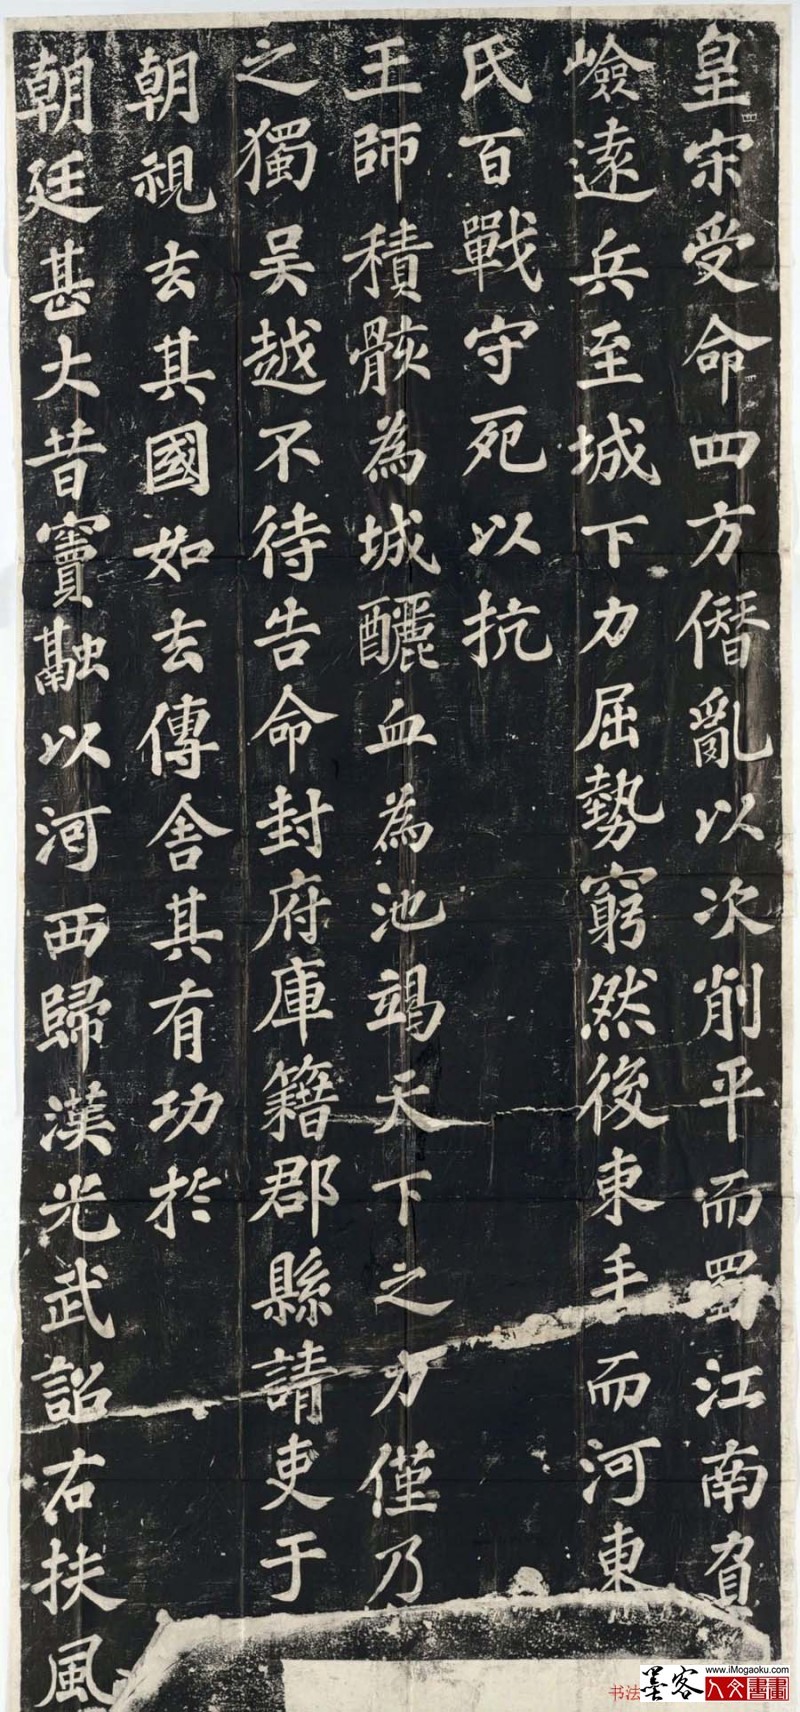 皇宋受命四方僭亂以次削平而蜀江南負
嶮遠兵至城下力屈勢窮然後束手而河東
氏百戰守死以抗
王師積骸為城釃血為池竭天下之力僅乃
之獨吴越不待告命封府庫籍郡縣請吏于
朝視去其國如去傳舍其有功於
朝廷甚大昔竇融以河西歸漢光武詔右扶風
书法
墨客
www.iMogaoku.com
人文書畫